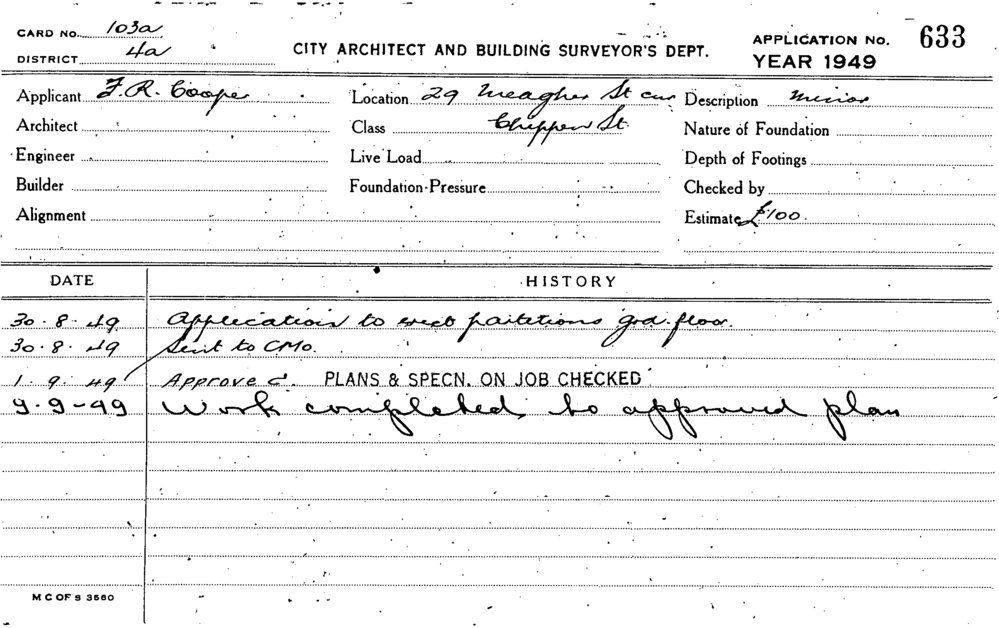 CARD No. 103a
DISTRICT 4a
CITY ARCHITECT AND BUILDING SURVEYOR'S DEPT.
APPLICATION No. 633
YEAR 1949
Applicant F. R. Cooper
Architect
Engineer
Builder
Alignment
Location 29 Meagher St cnr
Class Chippen St.
Live Load
Foundation Pressure
Description Minor
Nature of Foundation
Depth of Footings
Checked by
Estimate £100.
DATE HISTORY
30. 8. 49 Application to erect partetions grd. floor.
30. 8. 49 Sent to CMO.
1. 9. 49 Approved. PLANS & SPECN. ON JOB CHECKED
9-9-49 Work completed to approved plan
M C OF S 3560